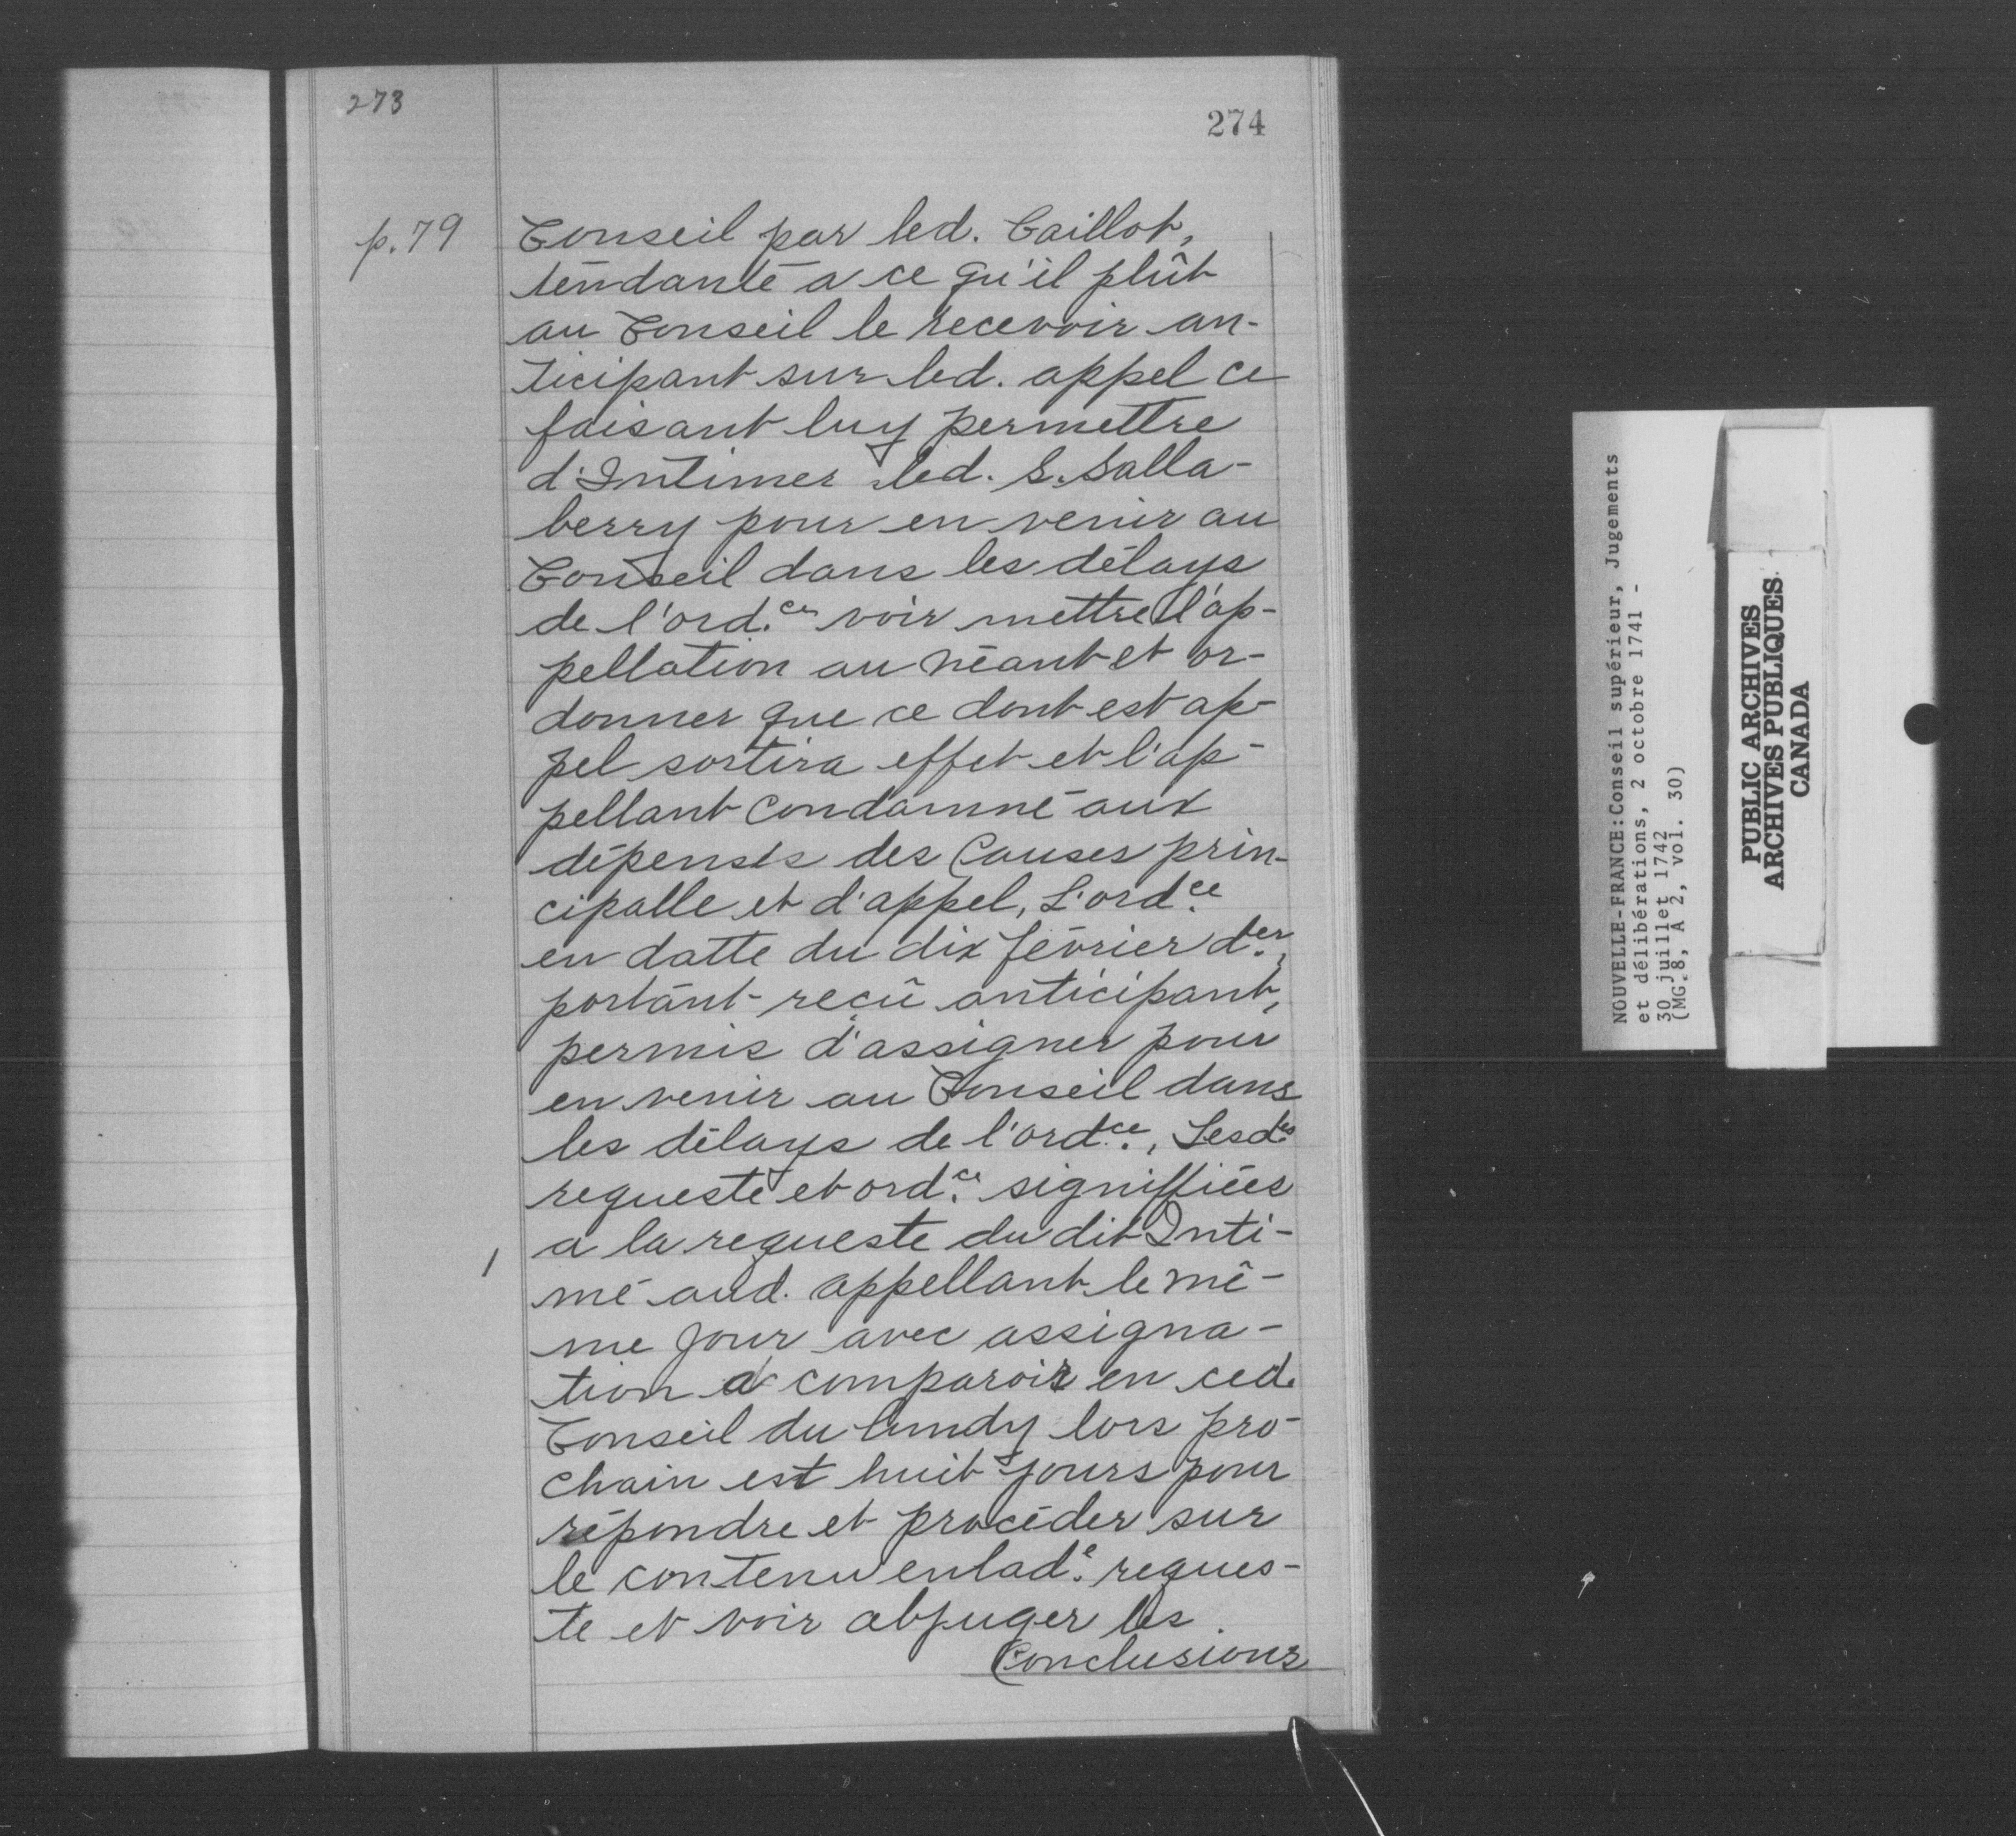 273
274
p. 79
Conseil par led. Caillot,
tendante a ce qu'il plût
au Conseil le recevoir an-
ticipant sur led. appel ce
faisant luy permettre
d'Intimer led. S. Salla-
berry pour en venir au
Conseil dans les délays
de l'ord.ce voir mettre l'ap-
pellation au néant et or-
donner que ce dont est ap-
pel sortira effet et l'ap-
pellant Condamné aux
dépensts des Causes prin-
cipalle et d'appel, L'ord.ce
en datte du dix février d.er,
portant reçû anticipant,
permis d'assigner pour
en venir au Conseil dans
les délays de l'ord.ce, Lesd.es
requeste et ord.ce signiffiées
a la requeste du dit Inti-
mé aud. appellant le mê-
me Jour avec assigna-
tion a comparoir en ced.
Conseil du lundy lors pro-
chain est huit jours pour
répondre et procéder sur
le contenu enlad.e reques-
te et voir abjuger les
Conclusions
NOUVELLE-FRANCE:Conseil supérieur, Jugements
et délibérations, 2 octobre 1741 -
30 juillet 1742
(MG 8, A 2, vol. 30)
PUBLIC ARCHIVES
ARCHIVES PUBLIQUES
CANADA